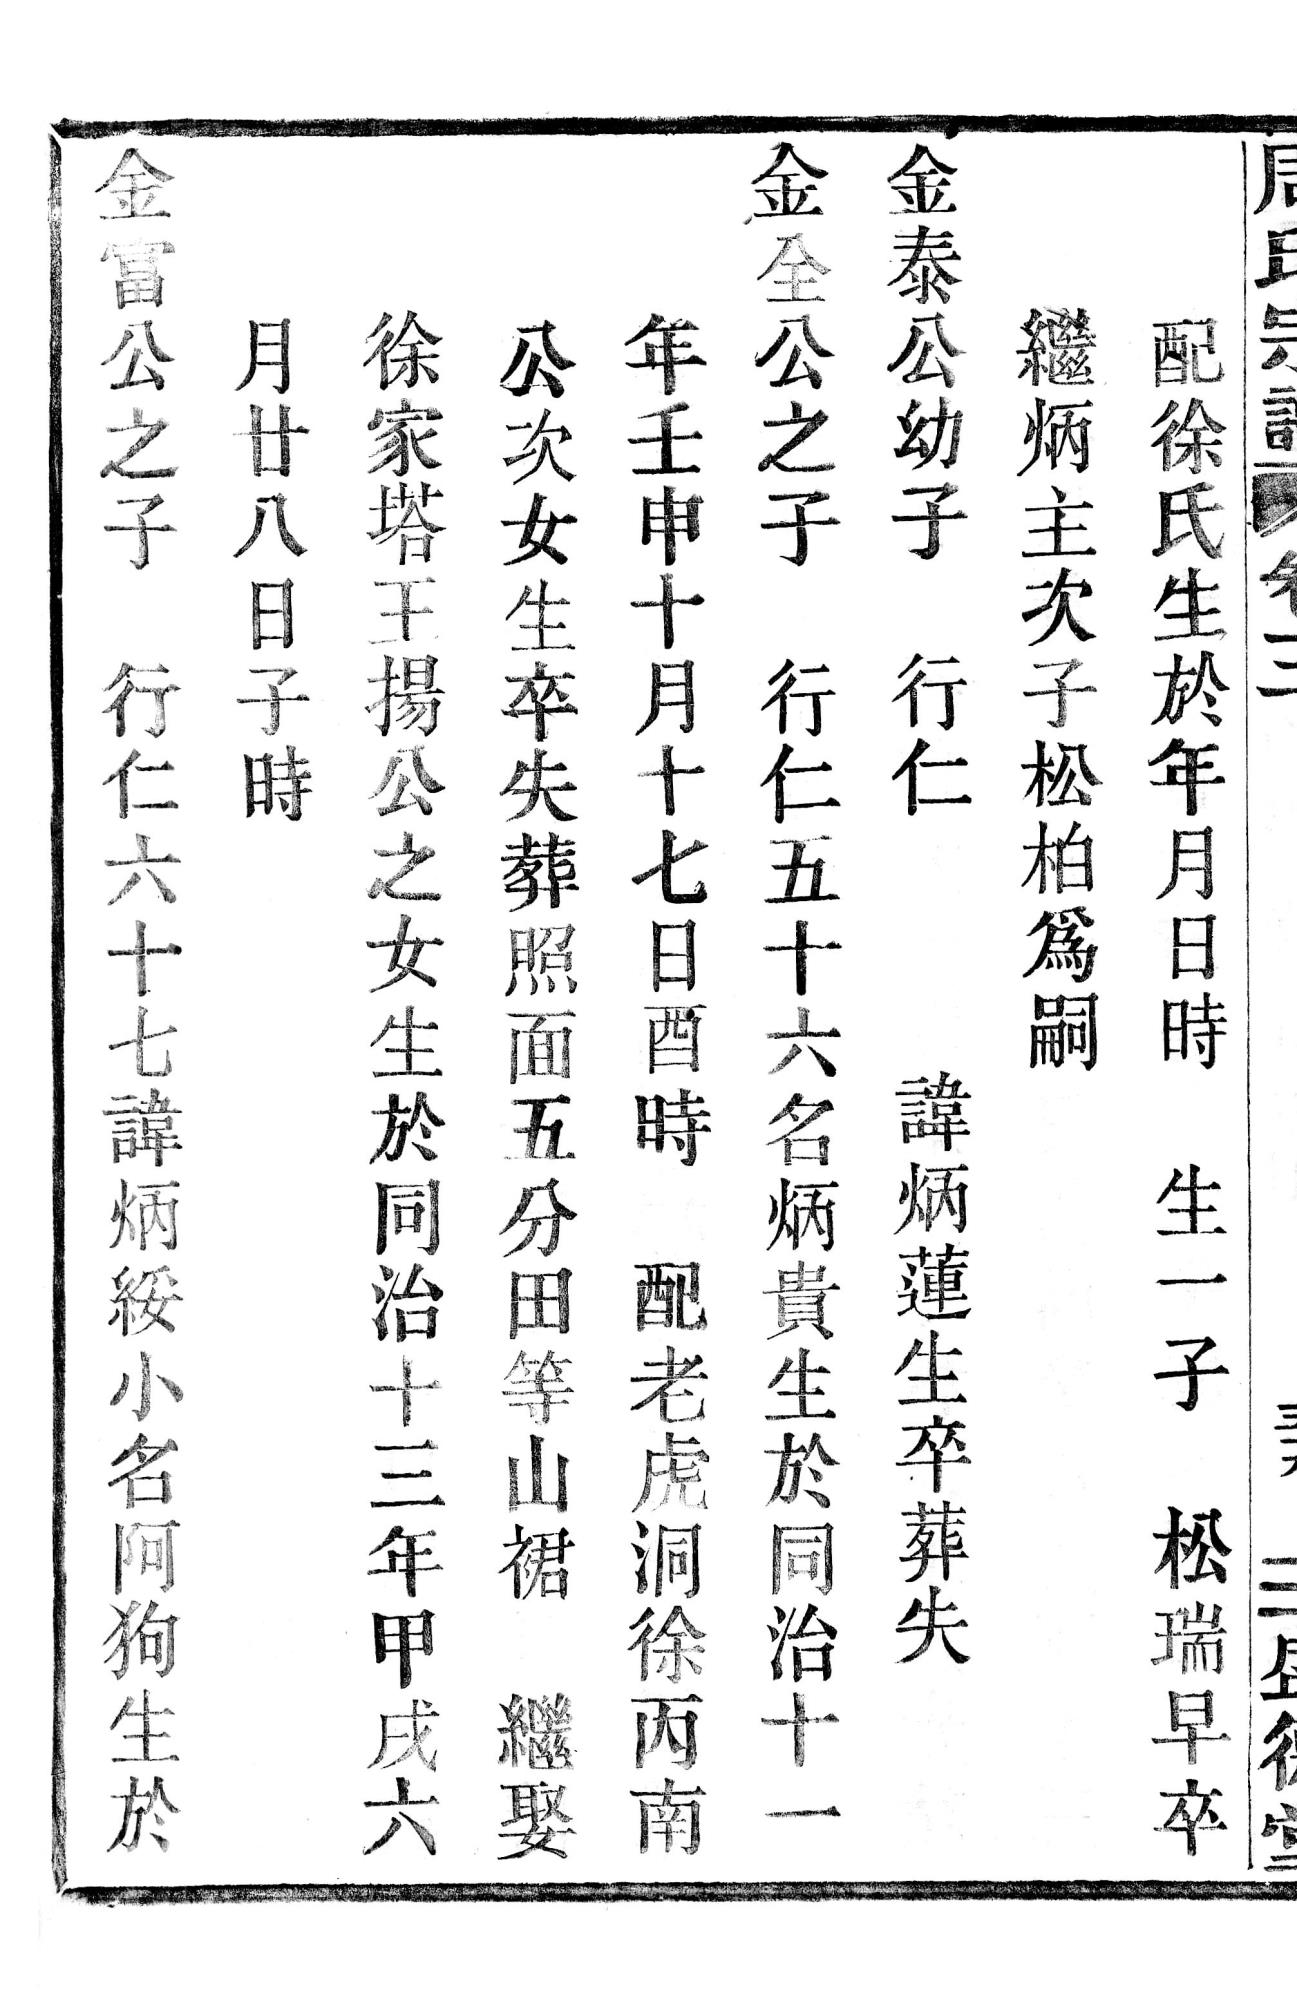 周氏宗譜 卷三 三盛德堂
配徐氏生於年月日時　生一子　松瑞早卒
繼炳主次子松柏爲嗣
金泰公幼子　行仁　　　諱炳蓮生卒葬失
金全公之子　行仁五十六名炳貴生於同治十一
年壬申十月十七日酉時　配老虎洞徐丙南
公次女生卒失葬照面五分田等山裙　繼娶
徐家塔王揚公之女生於同治十三年甲戌六
月廿八日子時
金富公之子　行仁六十七諱炳綏小名阿狗生於